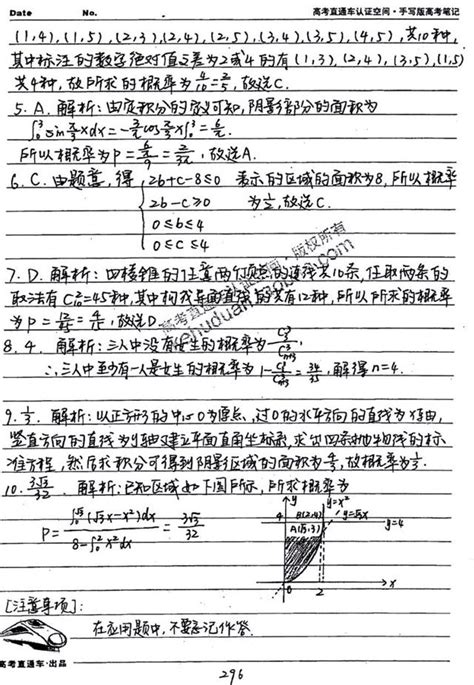 Date No. 高考直通车认证空间·手写版高考笔记
(1,4),(1,5),(2,3),(2,4),(2,5),(3,4),(3,5),(4,5),共10种,
其中标注的数字绝对值之差为2或4的有(1,3),(2,4),(3,5),(1,5)
共4种,故所求的概率为4/10=2/5,故选C.
5. A. 解析:由定积分的定义可知,阴影部分的面积为
所以概率为P= ,故选A.
6. C. 由题意,得 2b+c-8≤0 表示的区域的面积为8,所以概率
2b-c≥0 为1/2,故选C.
0≤b≤4
0≤c≤4
7. D. 解析:四棱锥的任意两个顶点的连线共10条,任取两条的
取法有C²₁₀=45种,其中构成异面直线的共有12种,所以所求的概率
为P=12/45=4/15,故选D.
8. 4. 解析:三人中没有女生的概率为
∴三人中至少有一人是女生的概率为1- =34/35,解得n=4.
9. 解析:以正方形的中心O为原点,过O的水平方向的直线为x轴,
竖直方向的直线为y轴建立平面直角坐标系,求出四条抛物线的标
准方程,然后求积分可得到阴影区域的面积为 ,故概率为
10. 3√3/32. 解析:已知区域如下图所示,所求概率为
P=∫₀^√3(√3x-x²)dx/8-∫₀²x²dx=3√3/32
y y=x²
4 B(2,4) y=√3x
A(√3,3) y=4
0 2 x
[注意事项]:
在应用题中,不要忘记作答.
高考直通车·出品
296